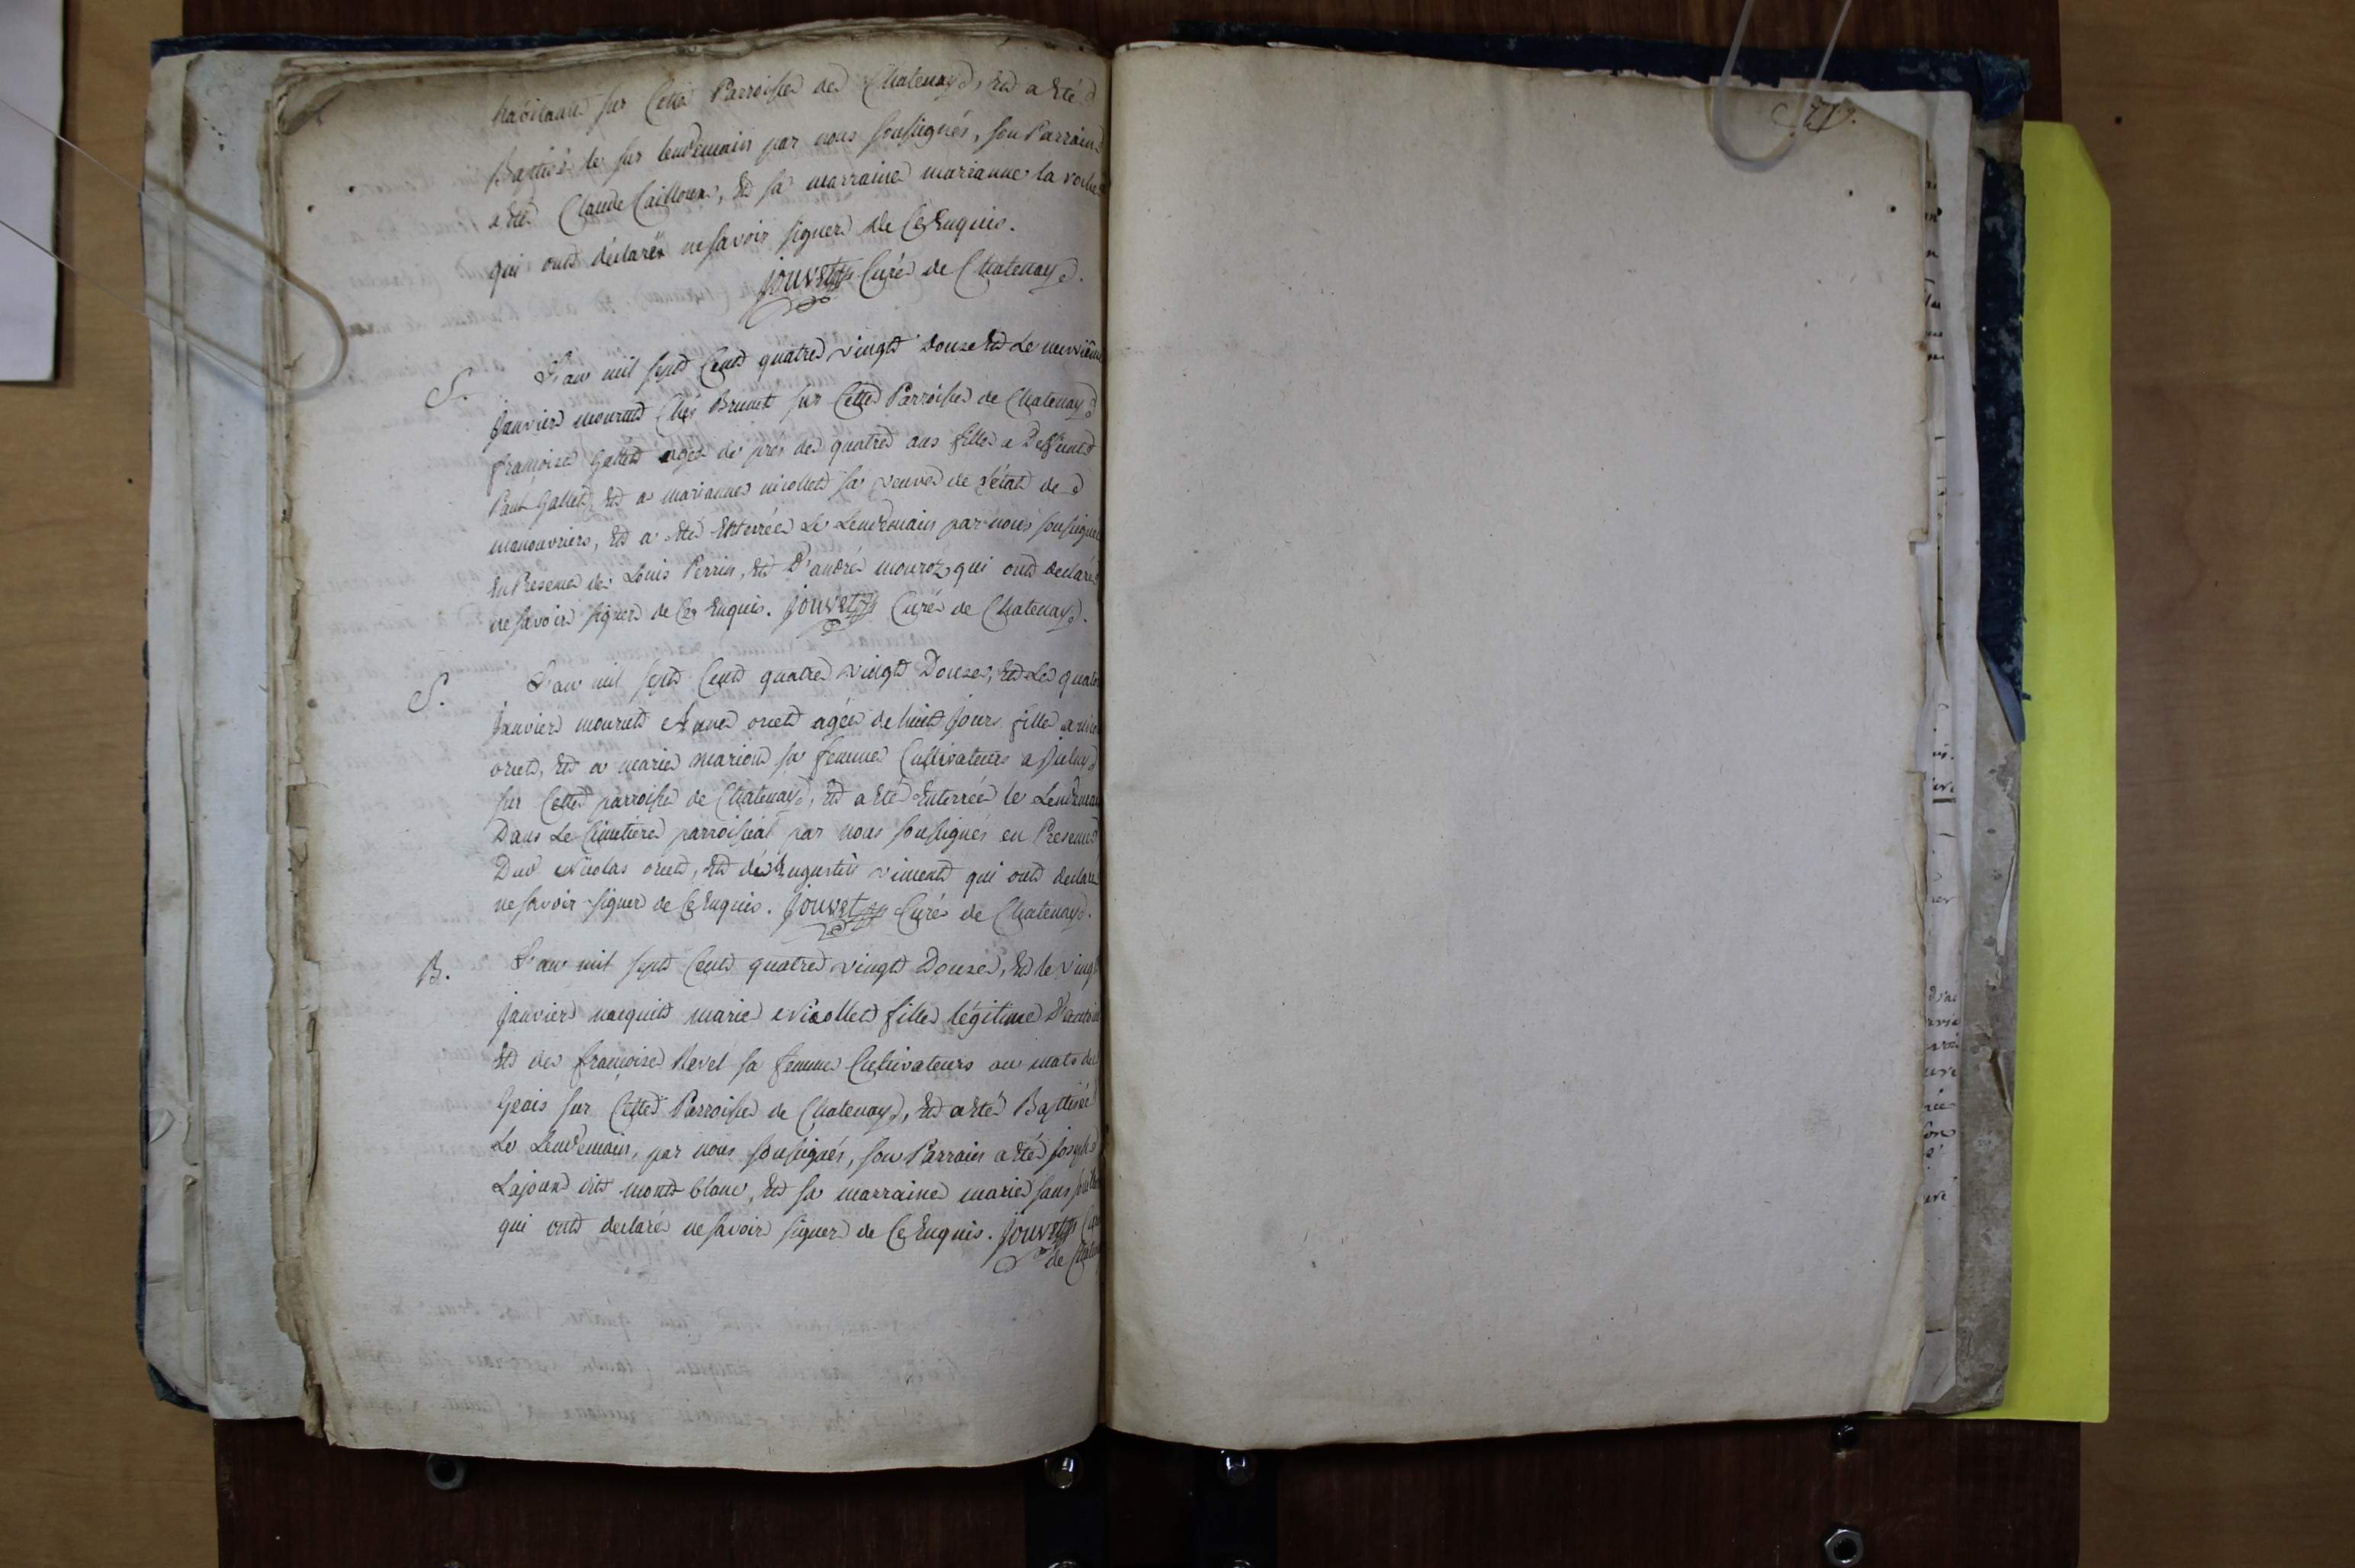 habitants sur Cette Parroisse de Chatenay, Et a Eté
Baptisé le sur lendemain par nous soussignés, son Parrain
a Eté Claude Cailloux, Et sa marraine marianne la roche
qui ont déclarés ne savoir signer de Ce Enquis.
Jouvet Curé de Chatenay.
S. L'an mil sept Cent quatre vingt Douze Et Le neuvième
Janvier mourut Chés Brunet sur Cette Parroisse de Chatenay
françoise Gallet agée de près de quatre ans fille a Deffunt
Paul Gallet, Et a marianne nicollet sa veuve de l'état de
manouvriers, Et a eté Enterrée Le Lendemain par nous soussignés
En Presence de Louis Perrin, Et D'andré mouroz qui ont declarés
ne savoir signer de Ce Enquis. Jouvet Curé de Chatenay.
S. L'an mil sept Cent quatre vingt Douze, Et Le
Janvier mourut Anne oriet agée de huit Jours fille a
oriet, Et a marie Marion sa femme Cultivateurs a
sur Cette parroisse de Chatenay, Et a Eté Enterrée le Lendemain
Dans Le Cimetiere parroissial par nous soussignés en Presence
Du Nicolas oriet, Et de Augustin qui ont declarés
ne savoir signer de Ce Enquis. Jouvet Curé de Chatenay.
B. L'an mil sept Cent quatre vingt Douze, Et le vingt
Janvier naequit marie Nicollet fille légitime D'antoine
Et de françoise Revel sa femme Cultivateurs au mats des
Geais sur Cette Parroisse de Chatenay, Et a Eté Baptisée
Le Lendemain, par nous soussignés, son Parrain a Eté Joseph
Lajoux dit mont blanc, Et sa marraine marie sans
qui ont declarés ne savoir signer de Ce Enquis. Jouvet Curé
de